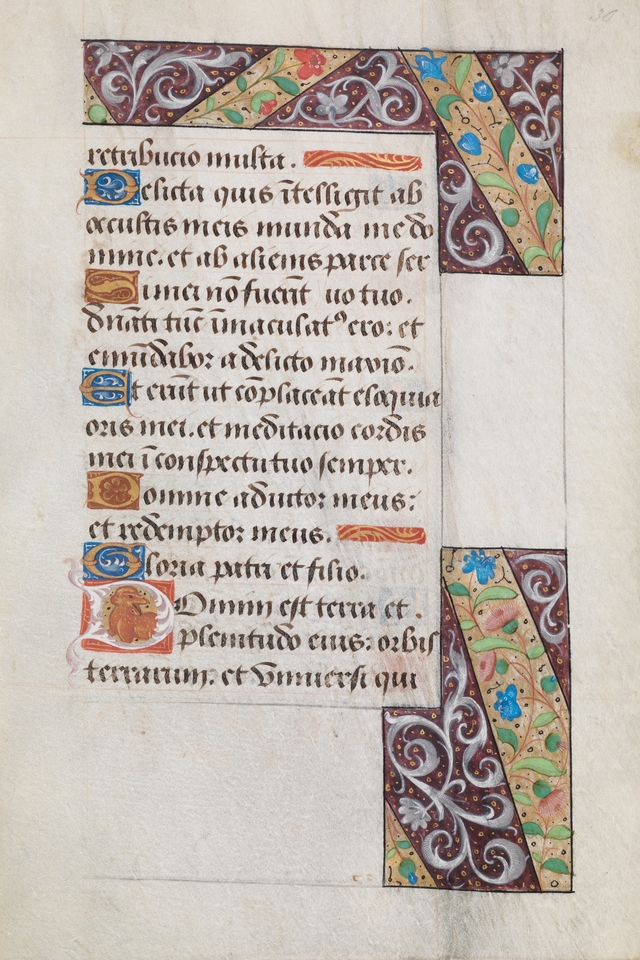 retribucio multa.
Delicta quis ĩtelligit ab
occultis meis munda me do
mine. et ab alienis parce ser
Si mei nõ fuerĩt uo tuo.
dñati tũc ĩmaculatꝰ ero: et
emũdabor a delicto maxiõ.
Et erũt ut cõplaceãt eloquia
oris mei. et meditacio cordis
mei ĩ conspectu tuo semper.
Domine adiutor meus:
et redemptor meus.
Gloria patri et filio.
Domini est terra et
plenitudo eius: orbis
terrarum: et vniuersi qui
36